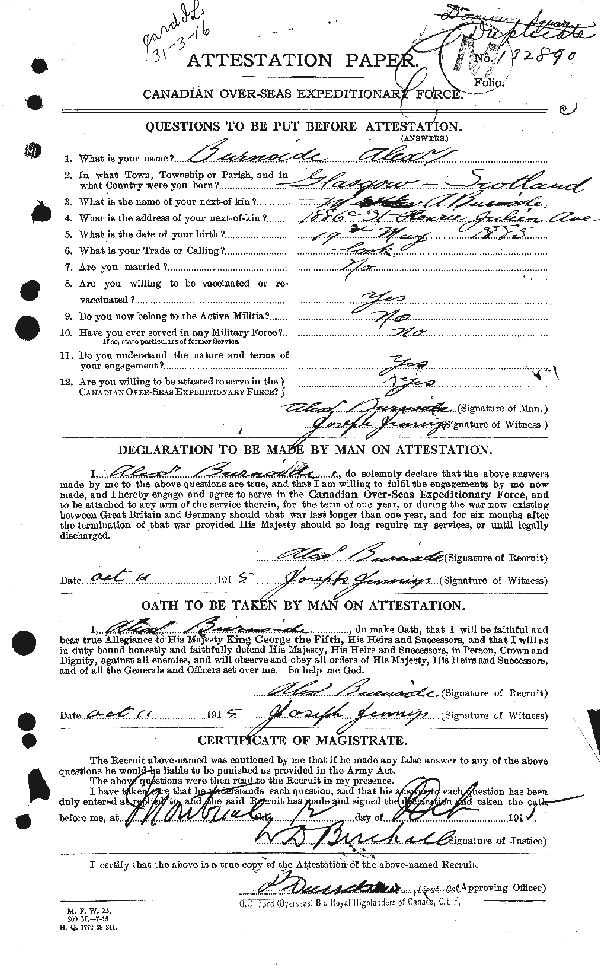 31-3-16
Duplicate
ATTESTATION PAPER.
No. 132890
Folio.
CANADIAN OVER-SEAS EXPEDITIONARY FORCE.
QUESTIONS TO BE PUT BEFORE ATTESTATION.
(ANSWERS)
1. What is your name? Burnside Alex
2. In what Town, Township or Parish, and in
what Country were you born? Glasgow - Scotland
3. What is the name of your next-of-kin? A Burnside
4. What is the address of your next-of-kin? Henri Julien Ave
5. What is the date of your birth? 19 May 1885
6. What is your Trade or Calling?
7. Are you married? No
8. Are you willing to be vaccinated or re-
vaccinated? Yes
9. Do you now belong to the Active Militia? No
10. Have you ever served in any Military Force? No
If so, state particulars of former Service
11. Do you understand the nature and terms of
your engagement? Yes
12. Are you willing to be attested to serve in the
CANADIAN OVER-SEAS EXPEDITIONARY FORCE? Yes
Alex Burnside (Signature of Man.)
Joseph Jennings (Signature of Witness)
DECLARATION TO BE MADE BY MAN ON ATTESTATION.
I, Alex Burnside, do solemnly declare that the above answers
made by me to the above questions are true, and that I am willing to fulfil the engagements by me now
made, and I hereby engage and agree to serve in the Canadian Over-Seas Expeditionary Force, and
to be attached to any arm of the service therein, for the term of one year, or during the war now existing
between Great Britain and Germany should that war last longer than one year, and for six months after
the termination of that war provided His Majesty should so long require my services, or until legally
discharged.
Alex Burnside (Signature of Recruit)
Date Oct 11 1915 Joseph Jennings (Signature of Witness)
OATH TO BE TAKEN BY MAN ON ATTESTATION.
I, Alex Burnside, do make Oath, that I will be faithful and
bear true Allegiance to His Majesty King George the Fifth, His Heirs and Successors, and that I will as
in duty bound honestly and faithfully defend His Majesty, His Heirs and Successors, in Person, Crown and
Dignity, against all enemies, and will observe and obey all orders of His Majesty, His Heirs and Successors,
and of all the Generals and Officers set over me. So help me God.
Alex Burnside (Signature of Recruit)
Date Oct 11 1915 Joseph Jennings (Signature of Witness)
CERTIFICATE OF MAGISTRATE.
The Recruit above-named was cautioned by me that if he made any false answer to any of the above
questions he would be liable to be punished as provided in the Army Act.
The above questions were then read to the Recruit in my presence.
I have taken care that he understands each question, and that his answer to each question has been
duly entered as replied to, and the said Recruit has made and signed the declaration and taken the oath
before me, at Montreal 12 day of Oct 1915
(Signature of Justice)
I certify that the above is a true copy of the Attestation of the above-named Recruit.
(Approving Officer)
O.C. 73rd (Overseas) Bn Royal Highlanders of Canada, C.E.F.
M. F. W. 23.
H. Q. 1772